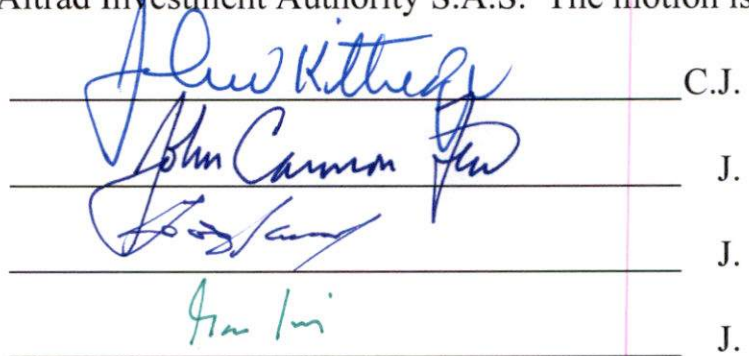 Altrad Investment Authority S.A.S. The motion is
John W Kittredge C.J.
John Cannon Few J.
J.
J.